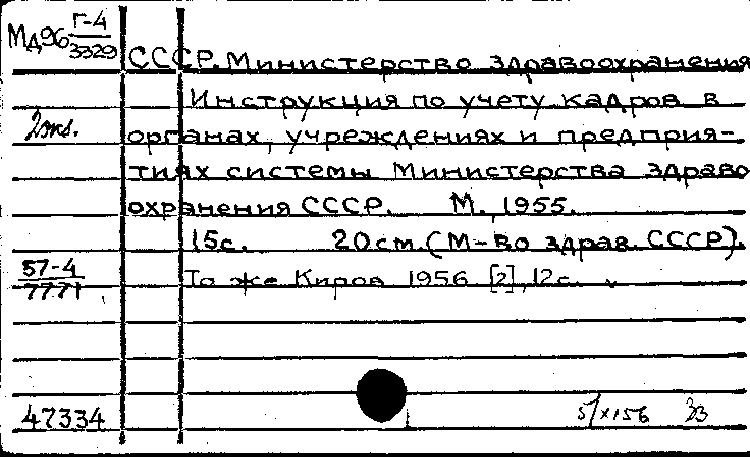 Мд96 Г-4
3329
СССР. Министерство здравоохранения
Инструкция по учету кадров в
2 экз.
органах, учреждениях и предприя-
тиях системы Министерства здраво
охранения СССР. М., 1955.
15с. 20см. (М-во здрав. СССР).
57-4
7771
То же Киров 1956 [2], 12с.
47334
5/XI 56 33